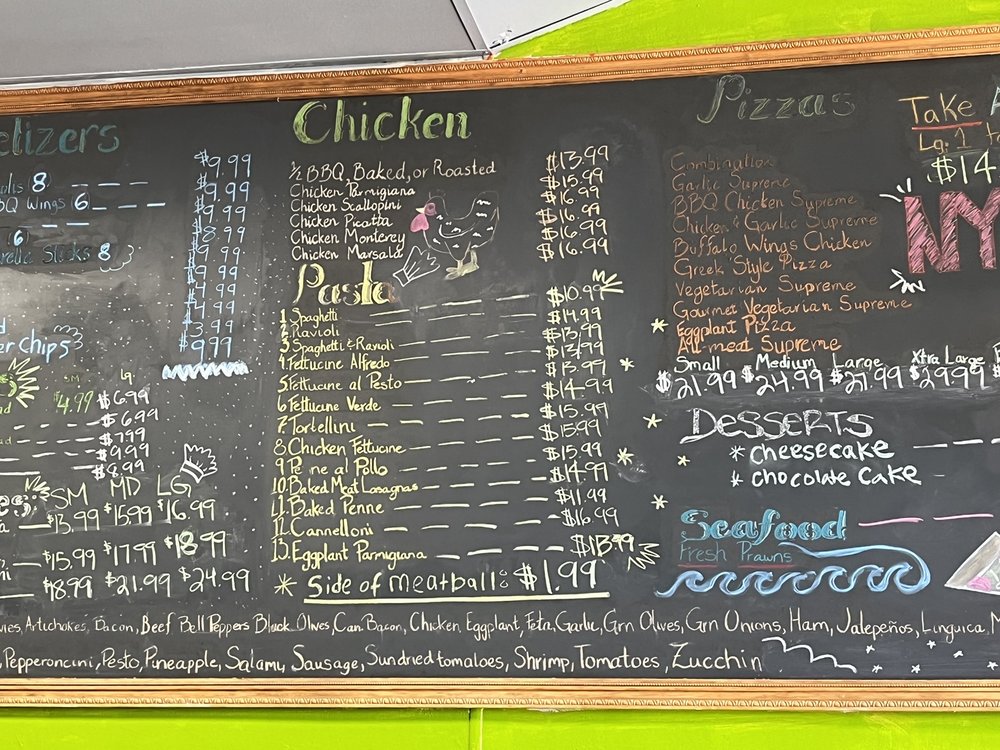 etizers
$9.99
8 $9.99
BQ Wings 6 $9.99
6 $8.99
Sticks 8 $9.99
$4.99
$4.99
$3.99
er Chips $9.99
SM Lg
$4.99 $6.99
$6.99
$7.99
$9.99
$8.99
SM MD LG
$13.99 $15.99 $16.99
$15.99 $17.99 $18.99
$18.99 $21.99 $24.99
Chicken
½ BBQ, Baked, or Roasted $13.99
Chicken Parmigiana $15.99
Chicken Scallopini $16.99
Chicken Picatta $16.99
Chicken Monterey $16.99
Chicken Marsala $16.99
Pasta
1 Spaghetti $10.99
2 Ravioli $14.99
3 Spaghetti & Ravioli $13.99
4 Fettucine Alfredo $13.99
5 Fettucine al Pesto $13.99
6 Fettucine Verde $14.99
7 Tortellini $15.99
8 Chicken Fettucine $15.99
9 Penne al Pollo $15.99
10 Baked Meat Lasagnas $14.99
11. Baked Penne $11.99
12. Cannelloni $16.99
13. Eggplant Parmigiana $13.99
* Side of meatballs $1.99
Pizzas
Combination
Garlic Supreme
BBQ Chicken Supreme
Chicken & Garlic Supreme
Buffalo Wings Chicken
Greek Style Pizza
Vegetarian Supreme
Gourmet Vegetarian Supreme
Eggplant Pizza
All-meat Supreme
Small Medium Large Xtra Large
$21.99 $24.99 $27.99 $29.99 $
Take
Lg. 1
$14
NY
Desserts
* Cheesecake
* Chocolate Cake
Seafood
Fresh Prawns
Artichokes, Bacon, Beef Bell Peppers Black Olives, Can. Bacon, Chicken, Eggplant, Feta, Garlic, Grn Olives, Grn Onions, Ham, Jalepeños, Linguica,
Pepperoncini, Pesto, Pineapple, Salamu, Sausage, Sundried tomatoes, Shrimp, Tomatoes, Zucchin